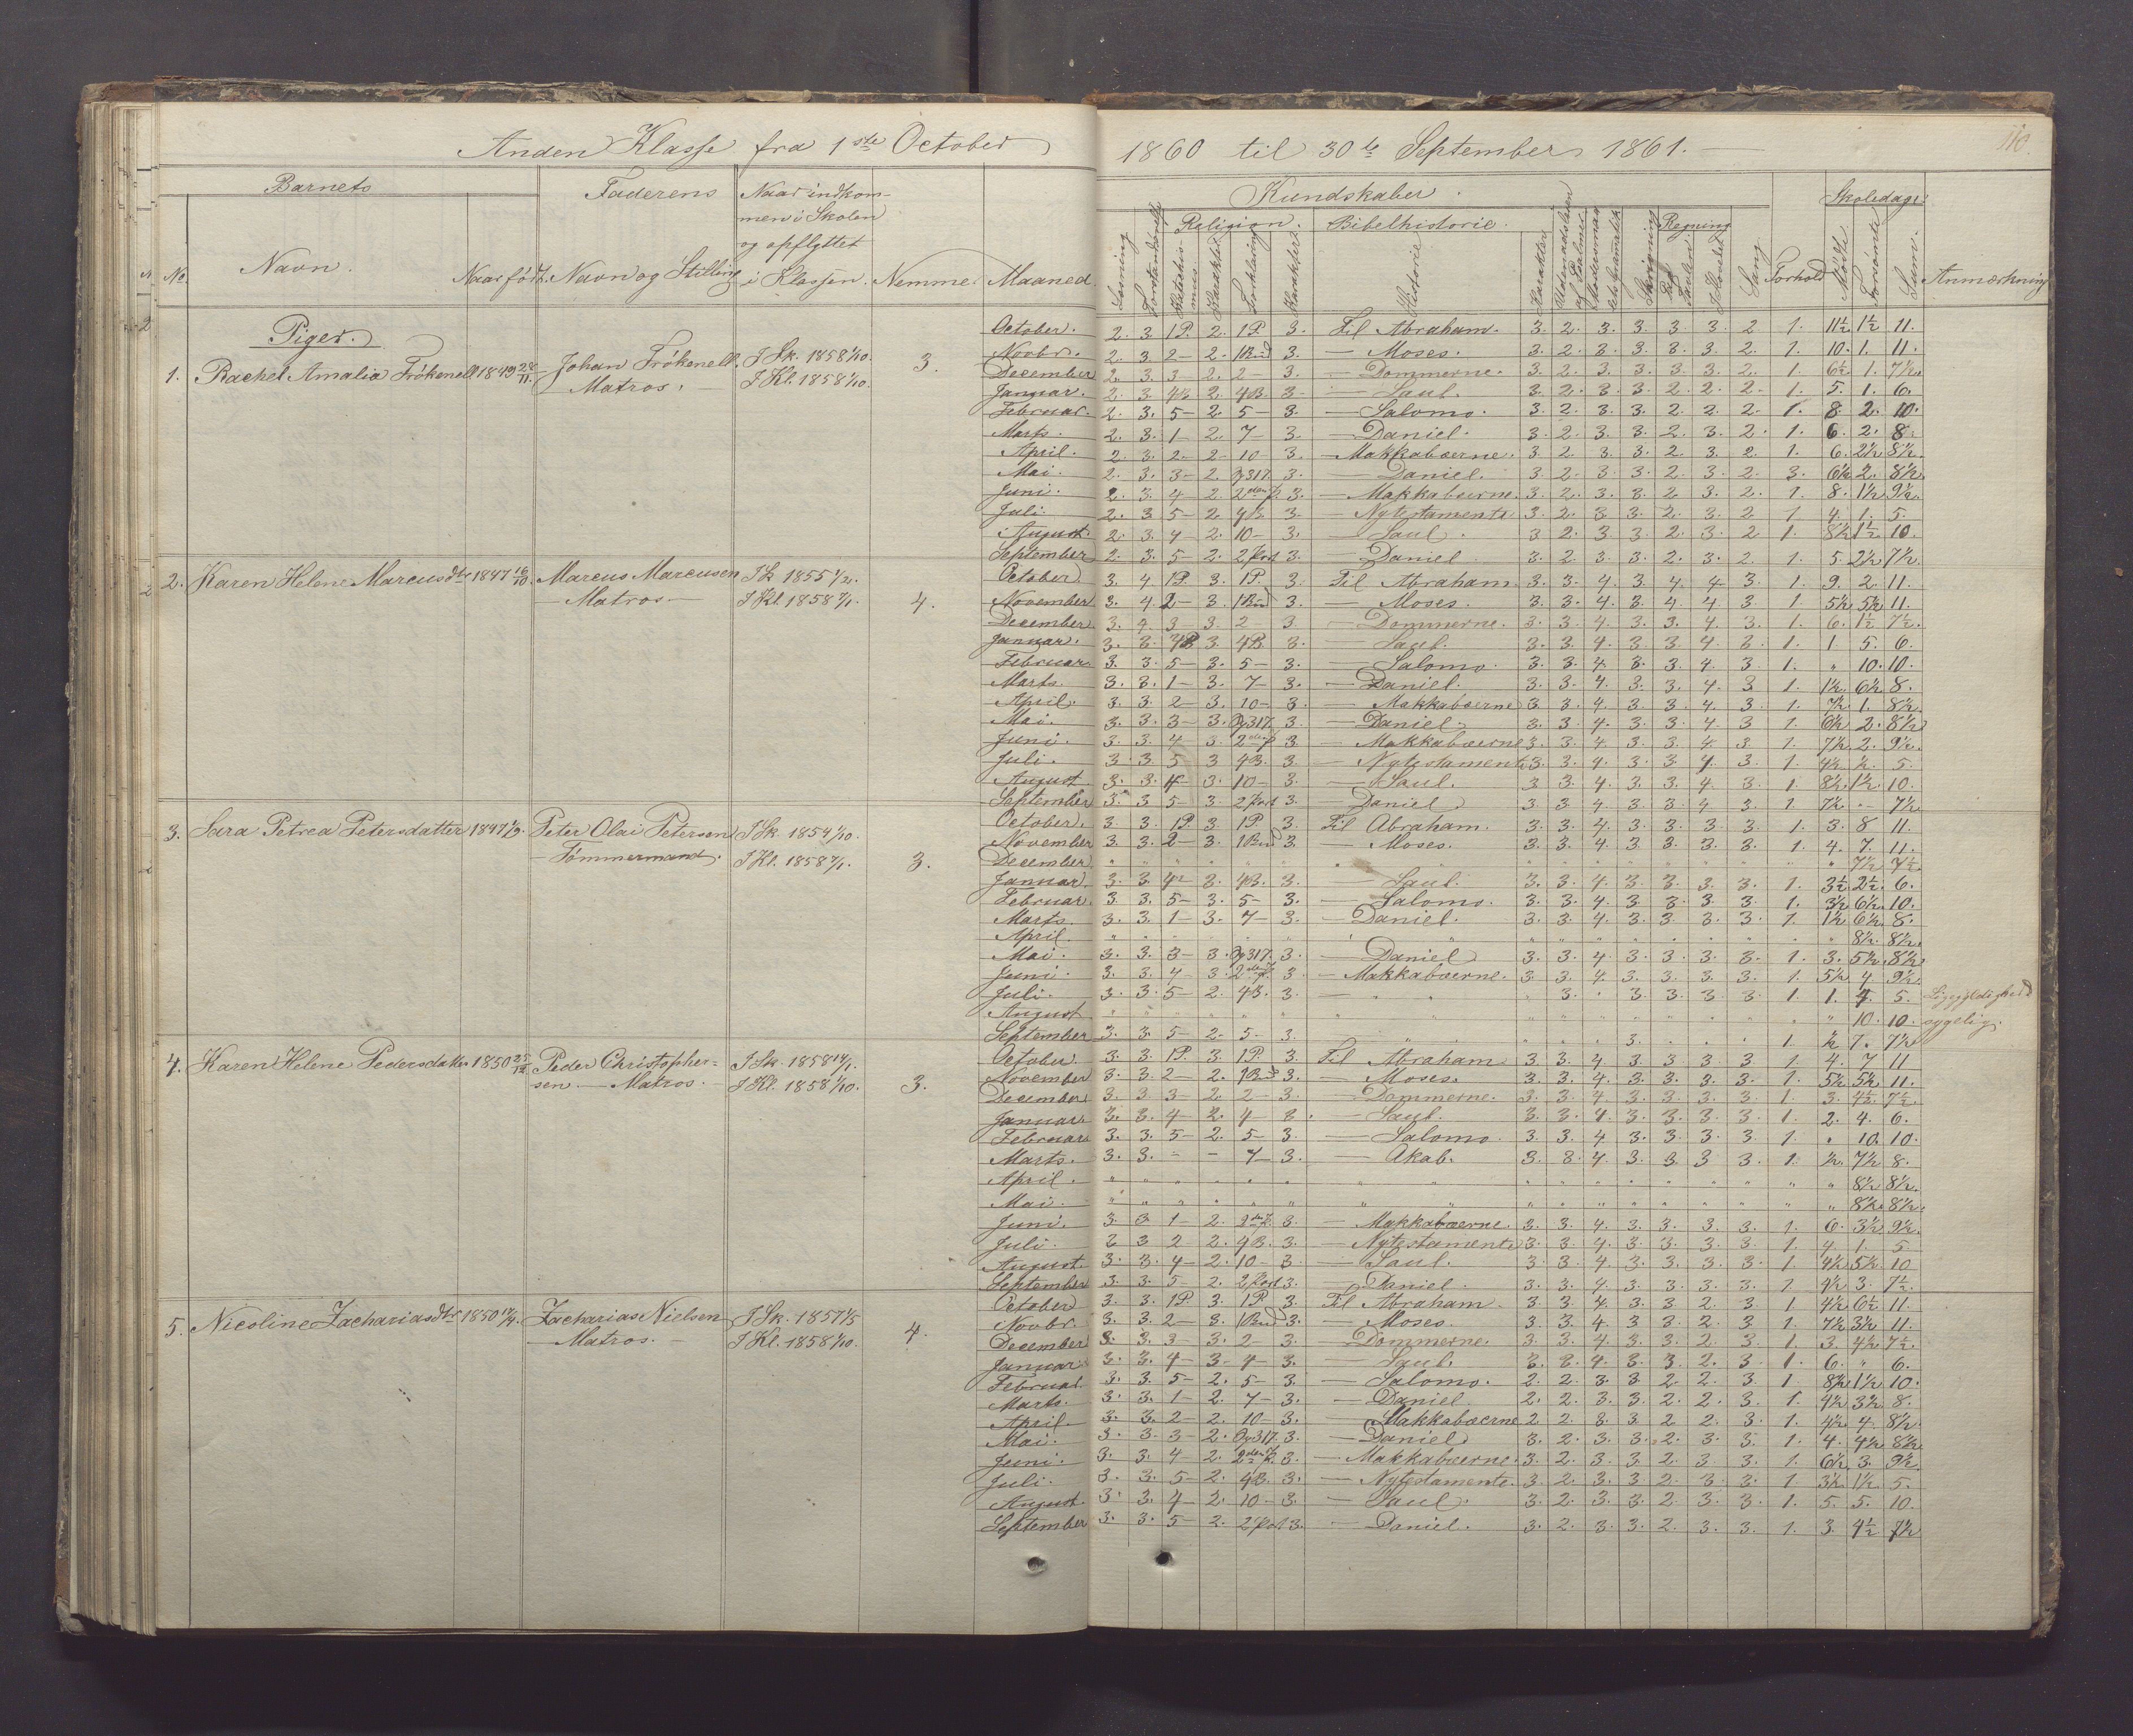 Anden Klasse fra 1ste October 1860 til 30te September 1861.
110.
Barnets
Faderens
Naar indkom-
men i Skolen
og opflyttet
i Klassen.
No.
Navn.
Naar født.
Navn og Stilling
Nemme.
Maaned.
Kundskaber.
Læsning
Religion.
Karakter
Forklaring
Karakter
Bibelhistorie.
Historie
Karakter
Skrivning
Regning
Paa Tavlen
I Hovedet
Sang
Forhold
Skoledage.
Mødte
Forsømte
Sum.
Anmærkning
Piger.
1. Rachel Amalia Frökenell 1849 28/11. Johan Frökenell. I Sk. 1858 1/10. 3.
Matros. I Kl. 1858 1/10.
October. 2. 3. 1P. 2. 1P. 3. Til Abraham. 3. 2. 3. 3. 3. 3. 2 1. 11½. 1½ 11.
Novbr. 2. 3 2- 2. 1Bud 3. - Moses. 3. 2. 3. 3. 3. 3. 2. 1. 10. 1. 11.
December 2. 3. 3- 2. 2- 3. - Dommerne. 3. 2. 3. 3. 3. 3. 2. 1. 6½. 1. 7½.
Januar. 2. 3. 4B 2. 4B. 3. - Saul. 3. 2. 3. 3. 2. 2. 2. 1. 5. 1. 6.
Februar. 2. 3. 5- 2. 5- 3. - Salomo. 3. 2. 3. 3. 2. 2. 2. 1. 8. 2. 10.
Marts. 2. 3. 1- 2. 7- 3. - Daniel. 3. 2. 3. 3. 2. 3. 2. 1. 6. 2. 8.
April. 2. 3. 2- 2- 10- 3. - Makkabæerne. 3. 2. 3. 3. 2. 3. 2. 1. 6. 2½ 8½.
Mai. 2. 3. 3- 2. 3. - Daniel. 3. 2. 3. 3. 2. 3. 2. 3. 6½ 2. 8½.
Juni. 2. 3. 4- 2. 3. - Makkabæerne. 3. 2. 3. 3. 2. 3. 2. 1. 8. 1½ 9½.
Juli. 2. 3 5- 2. 4B. 3. - Nytestamente 3. 2. 3. 3. 2. 3. 2 1 4. 1. 5.
August. 2. 3. 4- 2. 10- 3. - Saul. 3 2. 3 3. 2. 3. 2 1. 8½ 1½ 10.
September 2. 3. 5- 2. 3. - Daniel 3. 2. 3. 3. 2. 3. 2. 1. 5. 2½ 7½.
2. Karen Helene Marcusdtr 1847 16/10. Marcus Marcusen I Sk 1855 4.
- Matros - I Kl. 1858
October. 3. 4. 1P. 3. 1P. 3. Til Abraham. 3. 3. 4. 3. 4. 4. 3. 1. 9. 2. 11.
November 3. 4. 2- 3. 1Bud 3. - Moses. 3. 3. 4. 3. 4. 4. 3. 1. 5½ 5½ 11.
December. 3. 4. 3- 3. 2- 3 - Dommerne. 3. 3. 4. 3. 3. 4. 3. 1. 6. 1½ 7½.
Januar. 3. 3. 4B 3. 4B 3. - Saul. 3. 3. 4. 3. 3. 4. 3. 1. 1. 5. 6.
Februar. 3. 3. 5- 3. 5- 3. - Salomo. 3. 3. 4. 3. 3. 4. 3. 1. " 10. 10.
Marts. 3. 3. 1- 3. 7- 3. - Daniel. 3. 3. 4. 3. 3. 4. 3 1. 1½. 6½. 8.
April. 3. 3. 2 3. 10- 3. - Makkabæerne 3 3. 4. 3. 3. 4. 3. 1. 7½. 1. 8½.
Mai. 3. 3. 3- 3. 3. - Daniel. 3. 3. 4. 3. 3. 4. 3 1. 6½ 2. 8½
Juni. 3. 3. 4- 3. 3. - Makkabæerne 3. 3. 4. 3. 3. 4. 3. 1. 7½. 2. 9½.
Juli. 3 3. 5 3 4B. 3. - Nytestamente 3. 3. 4. 3. 3. 4. 3. 1. 4½. ½. 5.
August 3. 3. 4- 3. 10- 3. - Saul. 3. 3. 4. 3. 3. 4. 3 1. 8½ 1½ 10.
September 3. 3 5- 3. 3. - Daniel. 3. 3. 4. 3. 3. 4. 3. 1. 7½ - 7½
3. Sara Petrea Petersdatter 1847 Peter Olai Petersen I Sk. 1854 1/10. 3.
- Tømmermand. I Kl. 1858
October. 3. 3. 1P 3. 1P. 3. Til Abraham. 3. 3. 4. 3. 3. 3. 3. 1. 3. 8 11.
November 3. 3. 2- 3. 1Bud 3. - Moses. 3. 3. 4. 3. 3. 3. 3. 1. 4. 7. 11.
December " 7½ 7½.
Januar. 3. 3. 4- 3. 4B. 3. - Saul. 3. 3. 4. 3. 3. 3. 3. 1. 3½ 2½. 6.
Februar. 3. 3. 5- 3. 5- 3. - Salomo. 3. 3. 4. 3. 3. 3. 3 1. 3½ 6½. 10.
Marts. 3. 3. 1- 3. 7- 3. - Daniel. 3. 3. 4. 3. 3. 3. 3. 1. 1½ 6½. 8.
April. " 8½. 8½.
Mai. 3. 3. 3- 3. 3. - Daniel 3. 3. 4. 3. 3. 3. 3. 1. 3. 5½. 8½
Juni. 3. 3. 4- 3. 3. - Makkabæerne. 3. 3. 4. 3. 3. 3. 3. 1. 5½ 4 9½.
Juli. 3. 3. 5- 2. 4B. 3. - " " 3. " 3. 3. 3. 3. 1. 1. 4. 5. Ligegyldighed
August. " 10. 10. sygelig.
September 3. 3. 5- 2. 5- 3. 3. 1. ½ 7. 7½
4. Karen Helene Pedersdatter 1850 25/12 Peder Christopher- I Sk. 1858 3.
sen. - Matros. I Kl. 1858 1/10.
October. 3. 3. 1P. 3. 1P. 3. Til Abraham 3. 3. 4 3. 3. 3. 3 1. 4. 7 11
November 3. 3. 2- 2. 1Bud 3. - Moses. 3. 3. 4. 3. 3. 3. 3. 1. 5½ 5½ 11.
December 3. 3 3- 2. 2- 3. - Dommerne. 3. 3. 4. 3. 3. 3. 3 1. 3. 4½. 7½.
Januar. 3. 3. 4- 2. 4- 3. - Saul. 3. 3. 4. 3. 3. 3. 3. 1. 2. 4. 6.
Februar. 3. 3. 5- 2. 5- 3. - Salomo. 3. 3. 4. 3. 3. 3. 3. 1. " 10. 10.
Marts. 3. 3. - - 7- 3. - Akab. 3. 3. 4. 3. 3. 3 3. 1. ½. 7½ 8.
April. " 8½ 8½.
Mai. " 8½ 8½.
Juni. 3. 3. 1- 2. 3. - Makkabæerne. 3. 3. 4. 3. 3. 3. 3. 1. 6. 3½ 9½.
Juli. 3 2 2- 2. 4B. 3. - Nytestamente 3. 3. 4. 3. 3. 3. 3 1. 4. 1. 5.
August. 3. 3. 4- 2. 10- 3. - Saul. 3. 3. 4. 3. 3. 3. 3. 1. 4½ 5½ 10
September 3. 3. 5- 2. 3. - Daniel. 3. 3. 4. 3. 3. 3. 3. 1 4½ 3. 7½.
5. Nicoline Zachariasdtr 1850 Zacharias Nielsen I Sk. 1857 4.
- Matros. - I Kl. 1858 1/10.
October 3. 3. 1P. 3. 1P. 3. Til Abraham. 3. 3. 4. 3. 3 2. 3 1 4½ 6½ 11.
Novbr. 3. 3. 2- 3. 1Bud 3. - Moses. 3. 3. 4. 3 3. 2. 3 1. 7½ 3½ 11.
December 3. 3. 3- 3. 2- 3. - Dommerne. 3. 3. 4. 3. 3. 2. 3 1. 3. 4½ 7½.
Januar. 3. 3. 4- 3- 4- 3. - Saul. 3. 3. 4. 3. 3. 2. 3. 1. 6. " 6.
Februar. 3. 3. 5- 2. 5- 3. - Salomo. 2. 2. 3. 3. 2. 2. 3. 1. 8½ 1½ 10.
Marts. 3. 3. 1- 2. 7- 3. - Daniel. 2. 2. 3. 3. 2. 2. 3. 1. 4½ 3½ 8.
April. 3. 3. 2- 2. 10- 3. - Makkabæerne 2 2. 3. 3. 2 2. 3. 1. 4½. 4. 8½.
Mai. 3. 3. 3- 2. 3. - Daniel. 3. 2. 3. 3. 2. 3. 3. 1. 4. 4½ 8½
Juni. 3. 3. 4- 2. 3. - Makkabæerne. 3. 2. 3. 3 2. 3. 3. 1. 6½ 3. 9½.
Juli. 3. 3. 5- 2. 4B. 3. - Nytestamente. 3. 2. 3. 3. 2. 3. 3. 1 3½. 1½. 5.
August. 3. 3. 4- 2. 10- 3. - Saul. 3. 2. 3. 3. 2. 3. 3. 1. 5. 5. 10.
September 3. 3. 5- 2. 3. - Daniel. 3. 2. 3. 3. 2. 3. 3. 1. 3. 4½ 7½